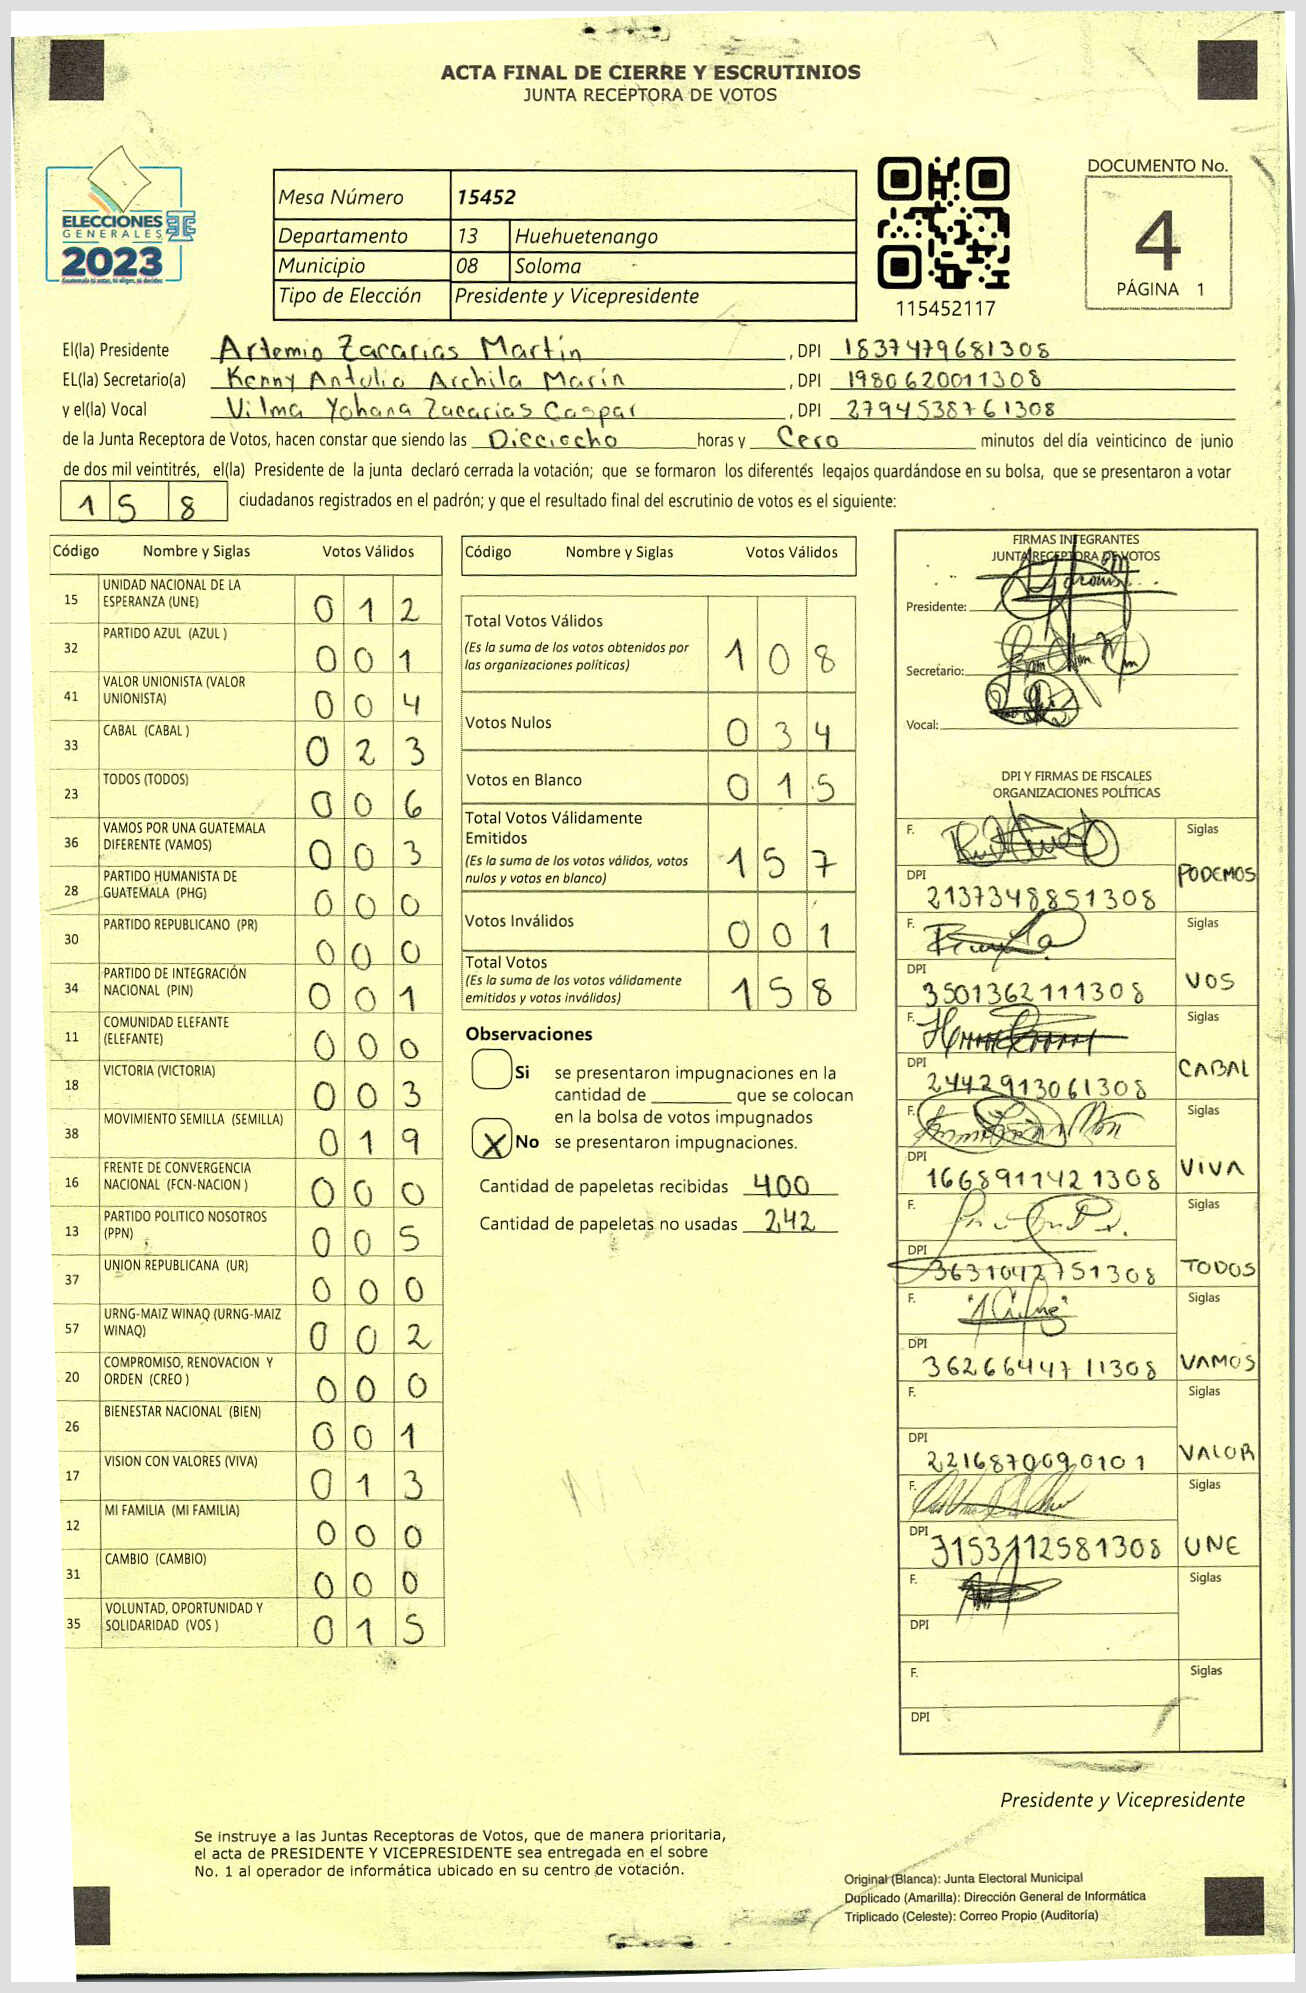 ACTA FINAL DE CIERRE Y ESCRUTINIOS
JUNTA RECEPTORA DE VOTOS
ELECCIONES
GENERALES
2023
Mesa Número 15452
Departamento 13 Huehuetenango
Municipio 08 Soloma
Tipo de Elección Presidente y Vicepresidente
115452117
DOCUMENTO No.
4
PÁGINA 1
El(la) Presidente Artemio Zacarias Martín , DPI 1837479681308
EL(la) Secretario(a) Kenny Antulio Archila Marín , DPI 1980620011308
y el(la) Vocal Vilma Yohana Zacarias Caspar , DPI 2794538761308
de la Junta Receptora de Votos, hacen constar que siendo las Dieciocho horas y Cero minutos del día veinticinco de junio
de dos mil veintitrés, el(la) Presidente de la junta declaró cerrada la votación; que se formaron los diferentes legajos guardándose en su bolsa, que se presentaron a votar
158 ciudadanos registrados en el padrón; y que el resultado final del escrutinio de votos es el siguiente:
Código Nombre y Siglas Votos Válidos
15 UNIDAD NACIONAL DE LA
ESPERANZA (UNE) 012
32 PARTIDO AZUL (AZUL ) 001
41 VALOR UNIONISTA (VALOR
UNIONISTA) 004
33 CABAL (CABAL ) 023
23 TODOS (TODOS) 006
36 VAMOS POR UNA GUATEMALA
DIFERENTE (VAMOS) 003
28 PARTIDO HUMANISTA DE
GUATEMALA (PHG) 000
30 PARTIDO REPUBLICANO (PR) 000
34 PARTIDO DE INTEGRACIÓN
NACIONAL (PIN) 001
11 COMUNIDAD ELEFANTE
(ELEFANTE) 000
18 VICTORIA (VICTORIA) 003
38 MOVIMIENTO SEMILLA (SEMILLA) 019
16 FRENTE DE CONVERGENCIA
NACIONAL (FCN-NACION ) 000
13 PARTIDO POLITICO NOSOTROS
(PPN) 005
37 UNION REPUBLICANA (UR) 000
57 URNG-MAIZ WINAQ (URNG-MAIZ
WINAQ) 002
20 COMPROMISO, RENOVACION Y
ORDEN (CREO ) 000
26 BIENESTAR NACIONAL (BIEN) 001
17 VISION CON VALORES (VIVA) 013
12 MI FAMILIA (MI FAMILIA) 000
31 CAMBIO (CAMBIO) 000
35 VOLUNTAD, OPORTUNIDAD Y
SOLIDARIDAD (VOS ) 015
Código Nombre y Siglas Votos Válidos
Total Votos Válidos
(Es la suma de los votos obtenidos por
las organizaciones políticas) 108
Votos Nulos 034
Votos en Blanco 015
Total Votos Válidamente
Emitidos
(Es la suma de los votos válidos, votos
nulos y votos en blanco) 157
Votos Inválidos 001
Total Votos
(Es la suma de los votos válidamente
emitidos y votos inválidos) 158
Observaciones
Si se presentaron impugnaciones en la
cantidad de ________ que se colocan
en la bolsa de votos impugnados
X No se presentaron impugnaciones.
Cantidad de papeletas recibidas 400
Cantidad de papeletas no usadas 242
FIRMAS INTEGRANTES
JUNTA RECEPTORA DE VOTOS
Presidente:
Secretario:
Vocal:
DPI Y FIRMAS DE FISCALES
ORGANIZACIONES POLÍTICAS
F. Siglas
DPI PODEMOS
2137348851308
F. Siglas
DPI VOS
3501362111308
F. Siglas
DPI CABAL
2442913061308
F. Siglas
DPI VIVA
1668911421308
F. Siglas
DPI TODOS
3631042751308
F. Siglas
DPI VAMOS
3626644711308
F. Siglas
DPI VALOR
2216870090101
F. Siglas
DPI 3153112581308 UNE
F. Siglas
DPI
F. Siglas
DPI
Presidente y Vicepresidente
Se instruye a las Juntas Receptoras de Votos, que de manera prioritaria,
el acta de PRESIDENTE Y VICEPRESIDENTE sea entregada en el sobre
No. 1 al operador de informática ubicado en su centro de votación.
Original (Blanca): Junta Electoral Municipal
Duplicado (Amarilla): Dirección General de Informática
Triplicado (Celeste): Correo Propio (Auditoría)